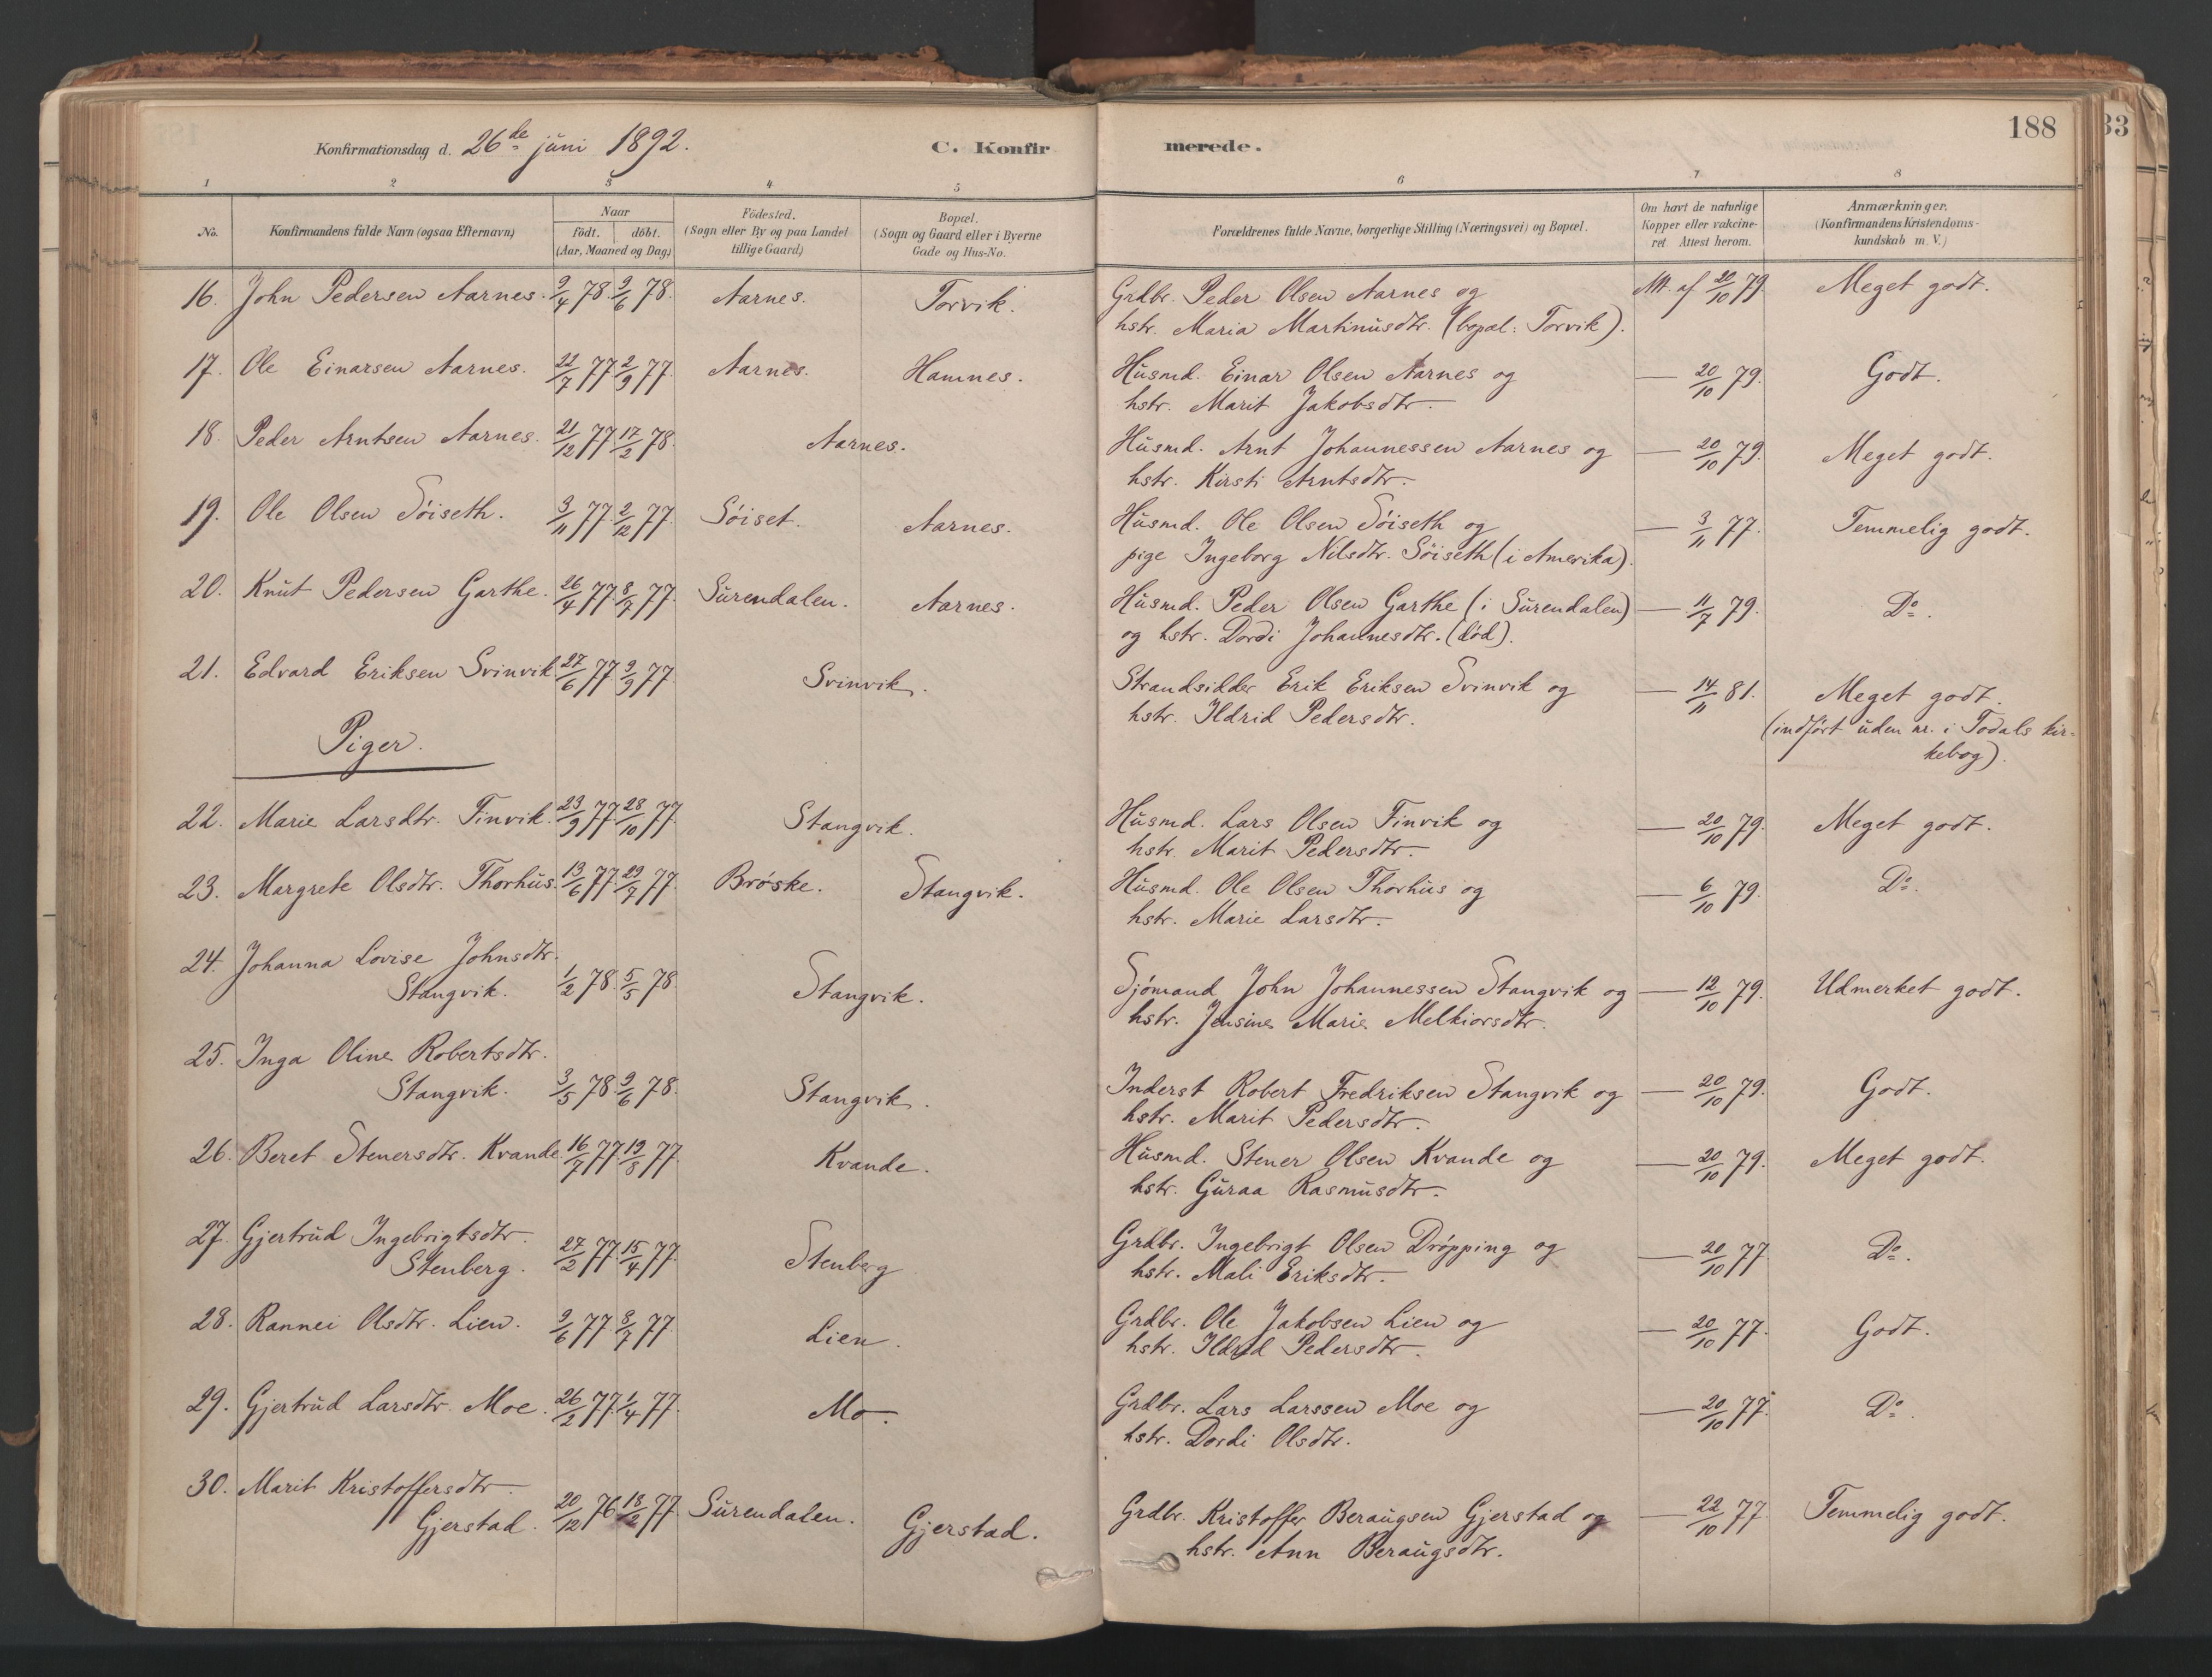 Konfirmationsdag d. 26de juni 1892.
C. Konfirmerede.
188
33
1 2 3 4 5 6 7 8
No.
Konfirmandens fulde Navn (ogsaa Efternavn)
Naar
födt. döbt.
(Aar, Maaned og Dag)
Födested.
(Sogn eller By og paa Landet
tillige Gaard)
Bopæl.
(Sogn og Gaard eller i Byerne
Gade og Hus-No.
Forældrenes fulde Navne, borgerlige Stilling (Næringsvei) og Bopæl.
Om havt de naturlige
Kopper eller vakcine-
ret Attest herom.
Anmærkninger.
(Konfirmandens Kristendoms-
kundskab m. V.)
16. John Pedersen Aarnes. 9/4 78. 9/6 78. Aarnes. Torvik. Grdbr. Peder Olsen Aarnes og Att. af 20/10 79 Meget godt.
hstr. Maria Martinusdtr. (bopæl: Torvik).
17. Ole Einarsen Aarnes. 22/7 77. 2/9 77. Aarnes. Hamnes. Husmd. Einar Olsen Aarnes og — 20/10 79. Godt.
hstr. Marit Jakobsdtr.
18. Peder Arntsen Aarnes. 21/12 77. 17/2 78. Aarnes. Husmd. Arnt Johannessen Aarnes og — 20/10 79. Meget godt.
hstr. Kirsti Arntsdtr.
19. Ole Olsen Söiseth. 3/11 77. 2/12 77. Söiset. Aarnes. Husmd. Ole Olsen Söiseth og — 3/11 77. Temmelig godt.
pige Ingeborg Nilsdtr. Söiseth (i Amerika).
20. Knut Pedersen Garthe. 26/4 77. 8/7 77. Surendalen. Aarnes. Husmd. Peder Olsen Garthe (i Surendalen) — 11/7 79. Do.
og hstr. Dordi Johannesdtr. (död).
21. Edvard Eriksen Svinvik. 27/6 77. 9/9 77. Svinvik. Strandsidder Erik Eriksen Svinvik og — 14/11 81. Meget godt.
hstr. Ildrid Pedersdtr. (indfört uden nr. i Todals kir-
kebog).
Piger.
22. Marie Larsdtr. Finvik. 23/9 77. 28/10 77. Stangvik. Husmd. Lars Olsen Finvik og — 20/10 79. Meget godt.
hstr. Marit Pedersdtr.
23. Margrete Olsdtr. Thorhus. 13/6 77. 29/7 77. Bröske. Stangvik. Husmd. Ole Olsen Thorhus og — 6/10 79. Do.
hstr. Marie Larsdtr.
24. Johanna Lovise Johnsdtr.
Stangvik. 1/2 78. 5/5 78. Stangvik. Sjömand John Johannessen Stangvik og — 12/10 79. Udmerket godt.
hstr. Jensine Marie Melkiorsdtr.
25. Inga Oline Robertsdtr.
Stangvik. 3/5 78. 9/6 78. Stangvik. Inderst Robert Fredriksen Stangvik og — 20/10 79. Godt.
hstr. Marit Pedersdtr.
26. Beret Stenersdtr. Kvande. 16/7 77. 19/8 77. Kvande. Husmd. Stener Olsen Kvande og — 20/10 79. Meget godt.
hstr. Guraa Rasmusdtr.
27. Gjertrud Ingebrigtsdtr.
Stenberg. 27/2 77. 15/4 77. Stenberg Grdbr. Ingebrigt Olsen Dröpping og — 20/10 77 Do.
hstr. Mali Eriksdtr.
28. Rannei Olsdtr. Lien. 9/6 77. 8/7 77. Lien. Grdbr. Ole Jakobsen Lien og — 20/10 77. Godt.
hstr. Ildrid Pedersdtr.
29. Gjertrud Larsdtr. Moe. 26/2 77. 1/4 77. Mo. Grdbr. Lars Larssen Moe og — 20/10 77. Do.
hstr. Dordi Olsdtr.
30. Marit Kristoffersdtr.
Gjerstad. 20/12 76. 18/2 77. Surendalen. Gjerstad. Grdbr. Kristoffer Beraugsen Gjerstad og — 22/10 77. Temmelig godt.
hstr. Ann Beraugsdtr.